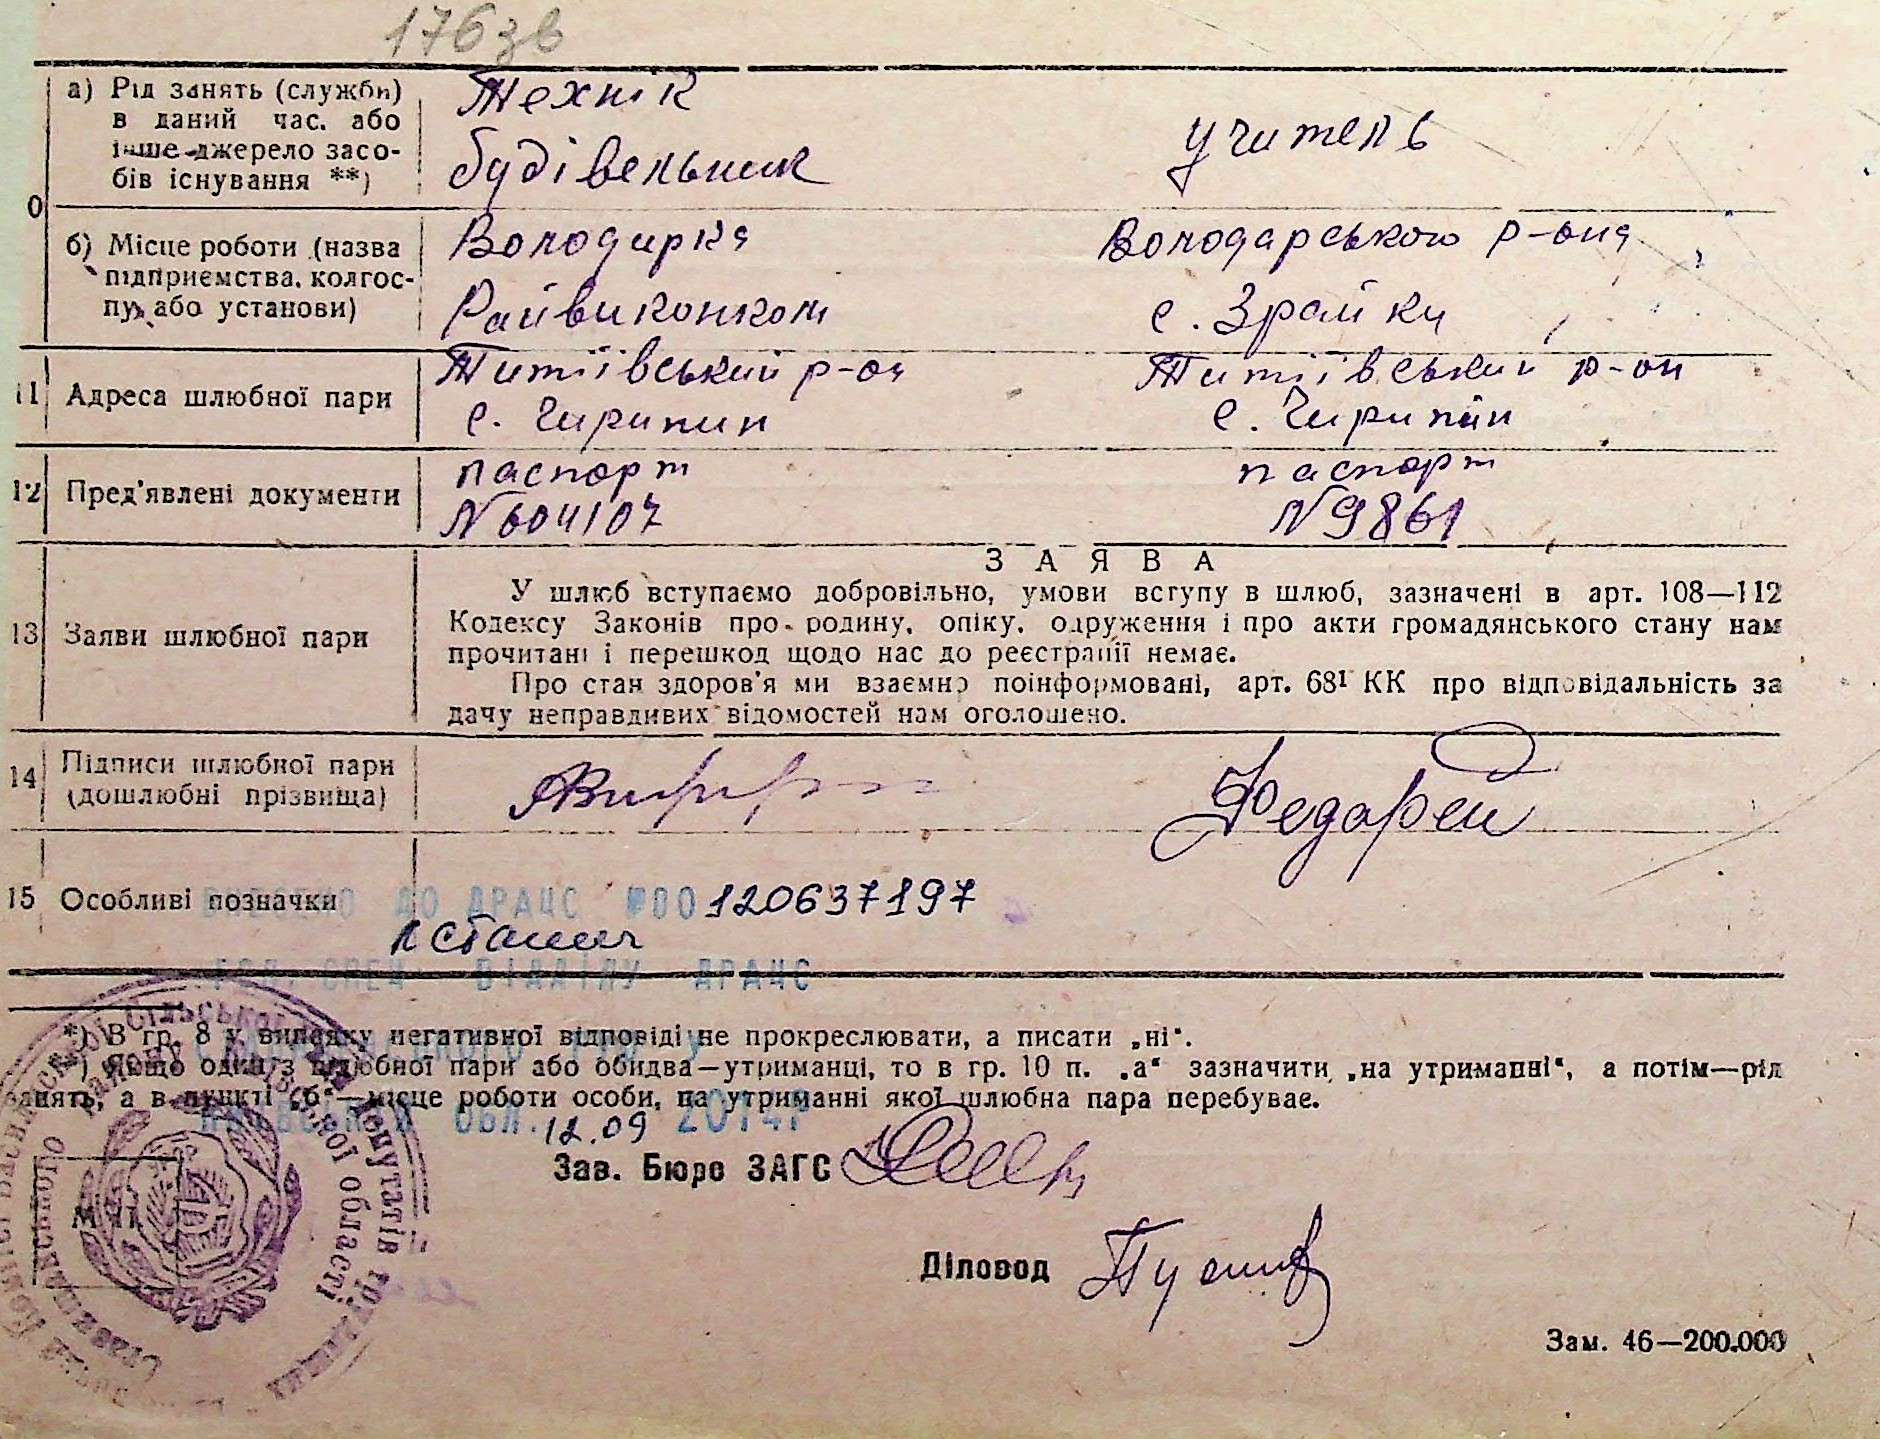 176 зв
а) Рід занять (служби) в даний час, або інше джерело засобів існування **)
Технік
будівельник
учитель
О
б) Місце роботи (назва підприємства, колгоспу, або установи)
Володирка
Райвиконком
Володарського р-она
с. Зрайки
11 Адреса шлюбної пари
Титіївський р-он
с. Чирипин
Титіївський р-он
с. Чирипин
12 Пред'явлені документи
паспорт
N 604107
паспорт
N 9861
13 Заяви шлюбної пари
ЗАЯВА
У шлюб вступаємо добровільно, умови вступу в шлюб, зазначені в арт. 108—112
Кодексу Законів про родину, опіку, одруження і про акти громадянського стану нам
прочитані і перешкод щодо нас до реєстрації немає.
Про стан здоров'я ми взаємно поінформовані, арт. 68¹ КК про відповідальність за
дачу неправдивих відомостей нам оголошено.
14 Підписи шлюбної пари
(дошлюбні прізвища)
Федорей
15 Особливі позначки
ВНЕСЕНО ДО ДРАЦС №00120637197
ГОЛ. СПЕЦ. ВІДДІЛУ ДРАЦС
*) В гр. 8 у випадку негативної відповіді не прокреслювати, а писати „ні“.
**) Якщо один з шлюбної пари або обидва—утриманці, то в гр. 10 п. „а“ зазначити „на утриманні“, а потім—рід
занять, а в пункті „б“—місце роботи особи, на утриманні якої шлюбна пара перебуває.
КИЇВСЬКА ОБЛ. 12.09 2014р
Зав. Бюро ЗАГС
М П
Діловод
Зам. 46—200.000
Сільської
депутатів трудящих
Київської області